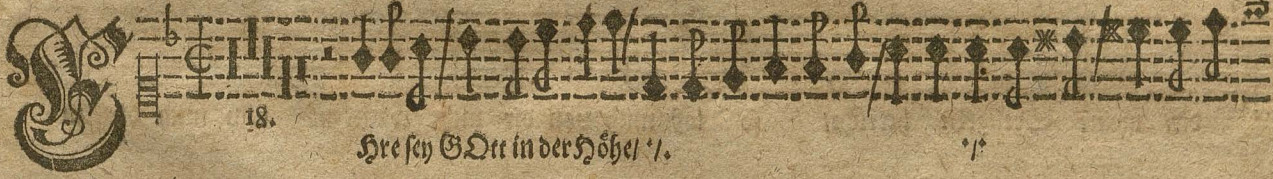 18.
EHre sey GOtt in der Höhe/ ·/.  ·/·